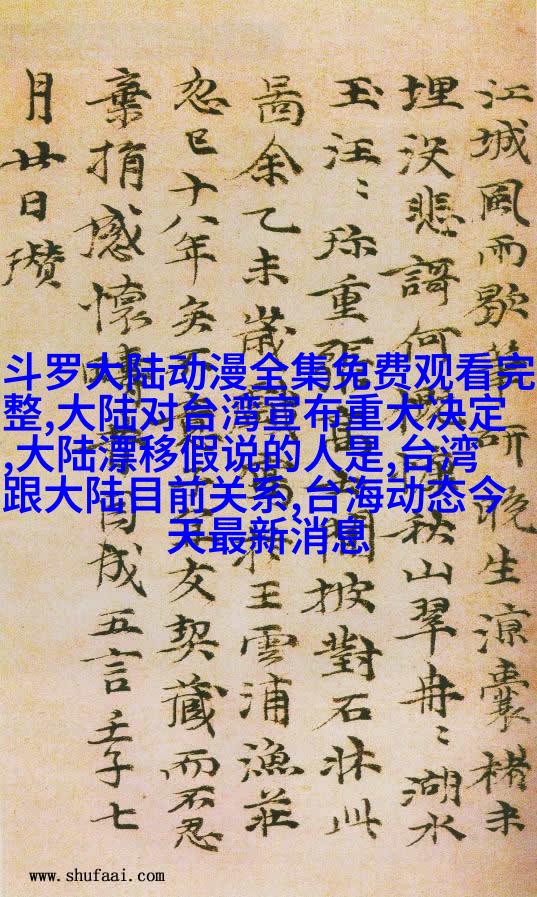 江城風雨歇研晚生涼囊楮未
埋没悲謌何秋山翠冉〻湖水
玉汪〻珎重張高士閒披對石牀此
啚余乙未歲王雲浦漁莊
忽已十八年矣不友契藏而不忍
棄捐感懷因成五言壬子七
月廿日瓚
斗罗大陆动漫全集免费观看完
整,大陆对台湾宣布重大决定
,大陆漂移假说的人是,台湾
跟大陆目前关系,台海动态今
天最新消息
www.shufaai.com